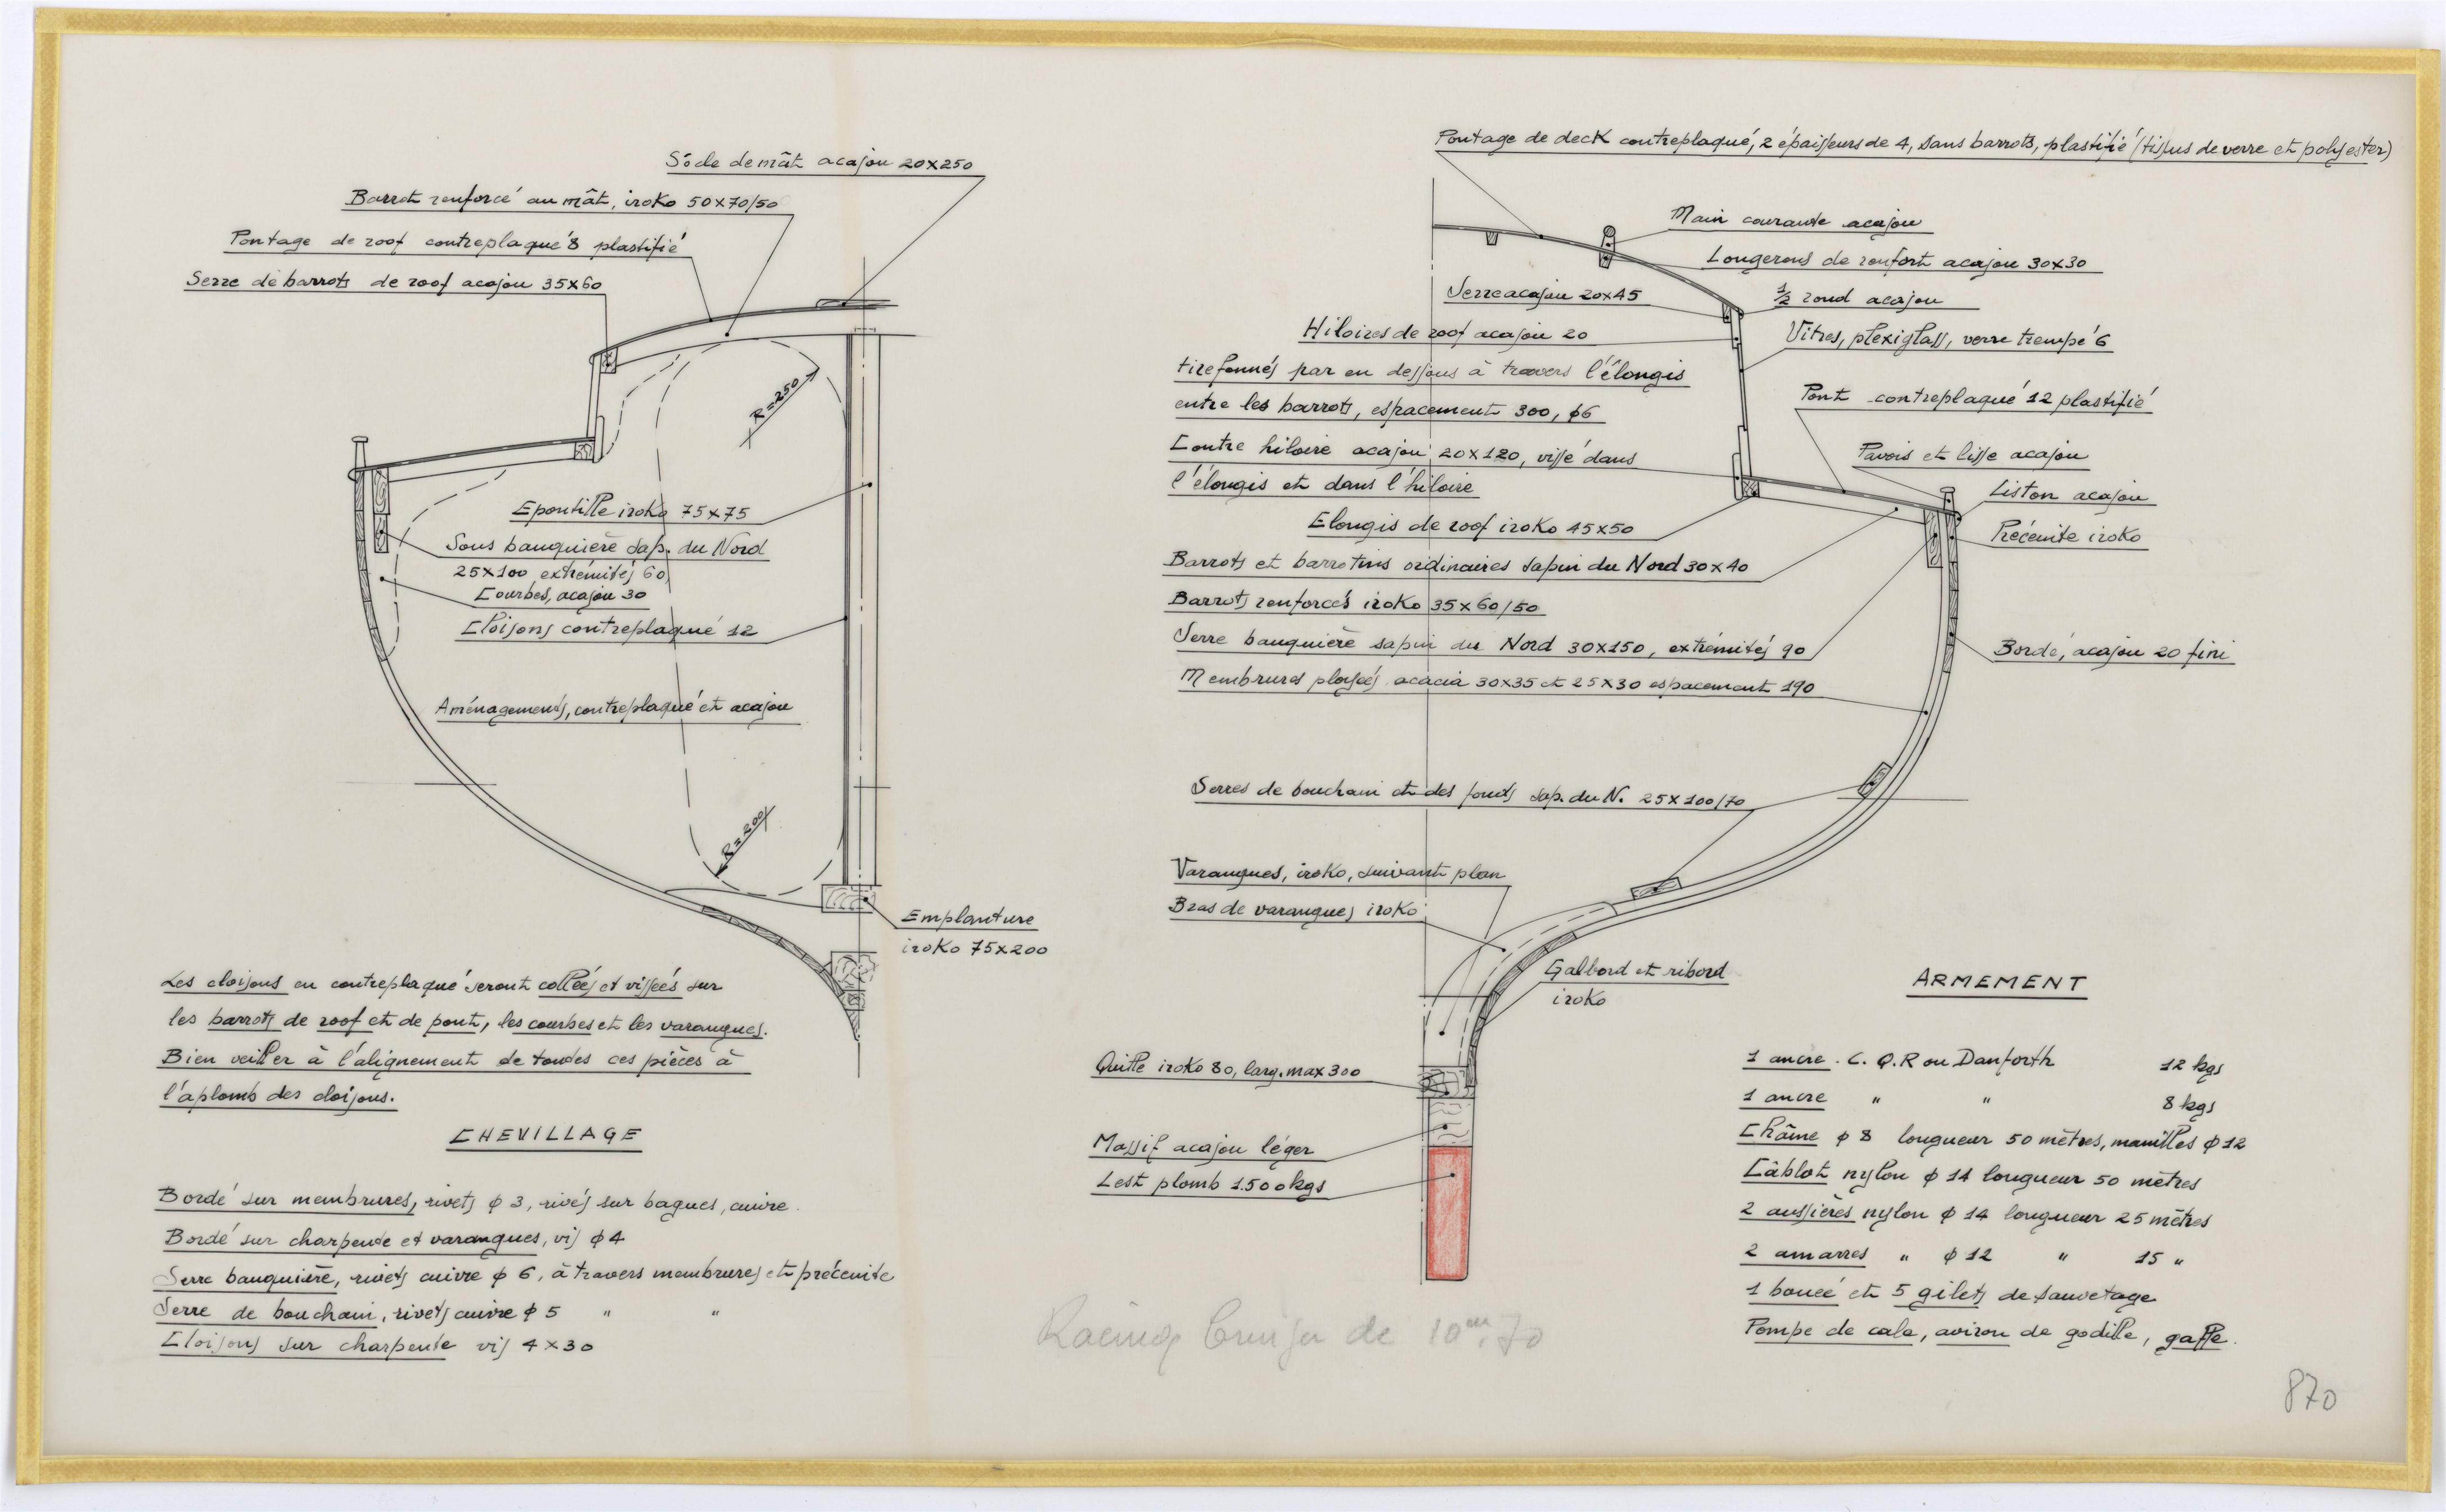 Socle de mât acajou 20x250
Barrot renforcé au mât, iroko 50x70/50
Pontage de roof contreplaqué 8 plastifié
Serre de barrots de roof acajou 35x60
R=250
Epontille iroko 75x75
Sous bauquière sap. du Nord
25x100 extrémités 60
Courbes, acajou 30
Cloisons contreplaqué 12
Aménagements, contreplaqué et acajou
R=200
Emplanture
iroko 75x200
Les cloisons en contreplaqué seront collées et vissées sur
les barrots de roof et de pont, les courbes et les varangues.
Bien veiller à l'alignement de toutes ces pièces à
l'aplomb des cloisons.
CHEVILLAGE
Bordé sur membrures, rivets φ 3, rivés sur bagues, cuivre.
Bordé sur charpente et varangues, vis φ 4
Serre bauquière, rivets cuivre φ 6, à travers membrures et préceinte
Serre de bouchain, rivets cuivre φ 5 " "
Cloisons sur charpente vis 4 x 30
Pontage de deck contreplaqué, 2 épaisseurs de 4, sans barrots, plastifié (tissus de verre et polyester)
Main courante acajou
Longerons de renfort acajou 30x30
Serre acajou 20x45
1/2 rond acajou
Hiloires de roof acajou 20
tirefonnés par en dessous à travers l'élongis
entre les barrots, espacement 300, φ6
Vitres, plexiglass, verre trempé 6
Contre hiloire acajou 20x120, vissé dans
l'élongis et dans l'hiloire
Pont contreplaqué 12 plastifié
Pavois et lisse acajou
Liston acajou
Elongis de roof iroko 45x50
Préceinte iroko
Barrots et barrotins ordinaires sapin du Nord 30x40
Barrots renforcés iroko 35x60/50
Serre bauquière sapin du Nord 30x150, extrémités 90
Bordé, acajou 20 fini
Membrures ployées acacia 30x35 et 25x30 espacement 190
Serres de bouchain et des fonds sap. du N. 25x100/70
Varangues, iroko, suivant plan
Bras de varangues iroko
Galbord et ribord
iroko
Quille iroko 80, larg. max 300
Massif acajou léger
Lest plomb 1.500kgs
ARMEMENT
1 ancre C.Q.R ou Danforth 12 kgs
1 ancre " " 8 kgs
Chaîne φ 8 longueur 50 mètres, manilles φ 12
Câblot nylon φ 14 longueur 50 mètres
2 aussières nylon φ 14 longueur 25 mètres
2 amarres " φ 12 " 15 "
1 bouée et 5 gilets de sauvetage
Pompe de cale, aviron de godille, gaffe.
Racing Cruiser de 10m.70
870